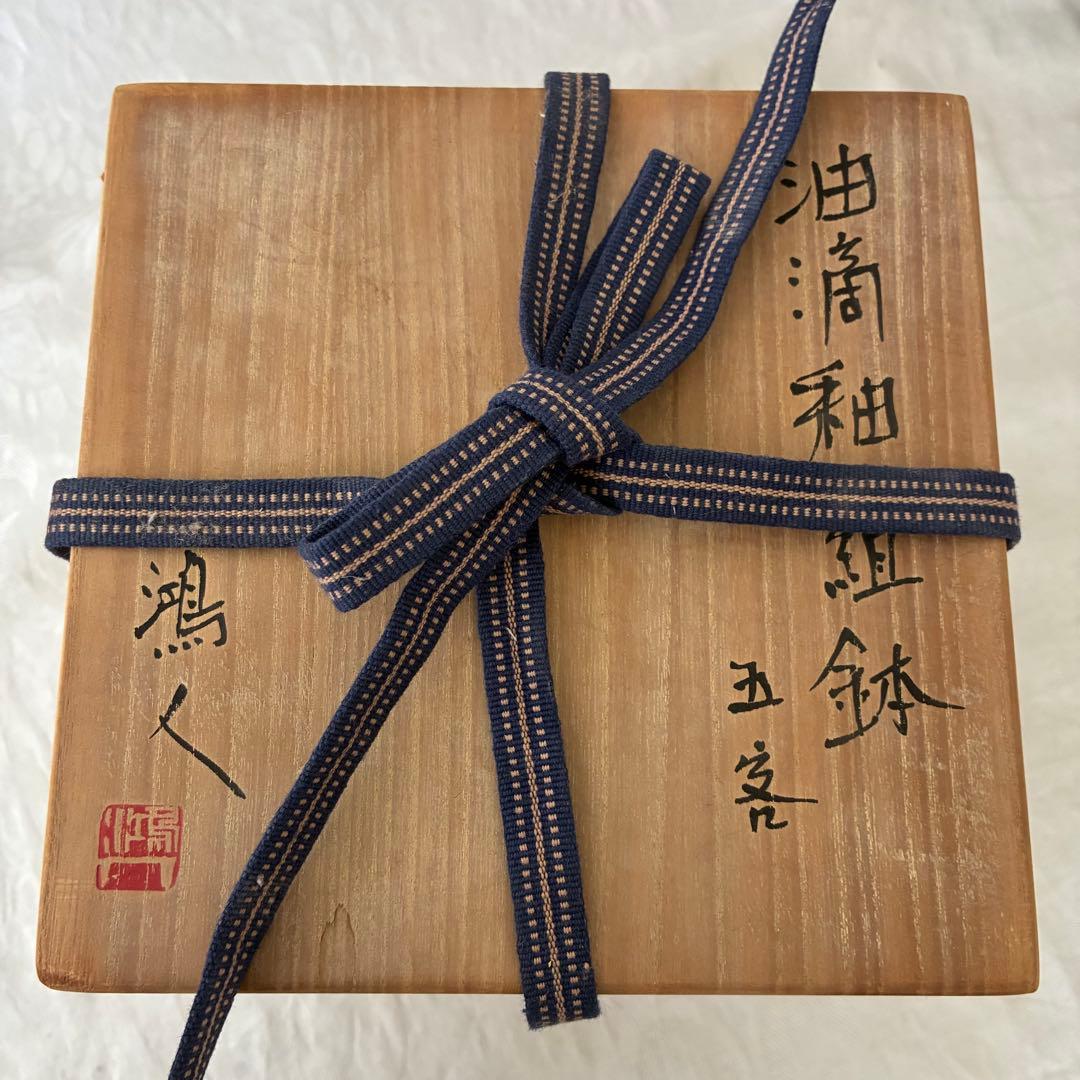 油滴釉組鉢
五客
鴻人